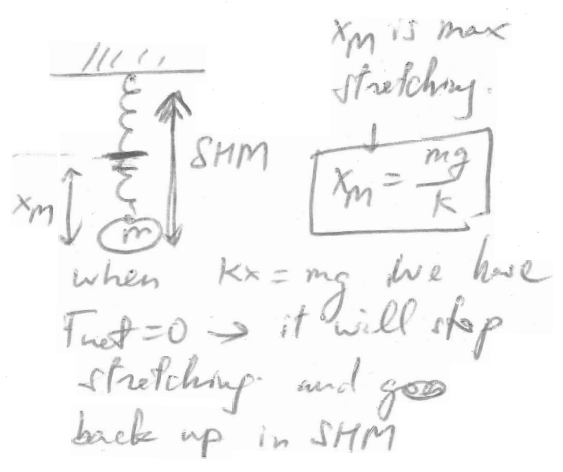 x_M is max
stretching.
SHM
x_M = mg/K
x_M
m
when Kx = mg we have
Fnet = 0 → it will stop
stretching and go
back up in SHM